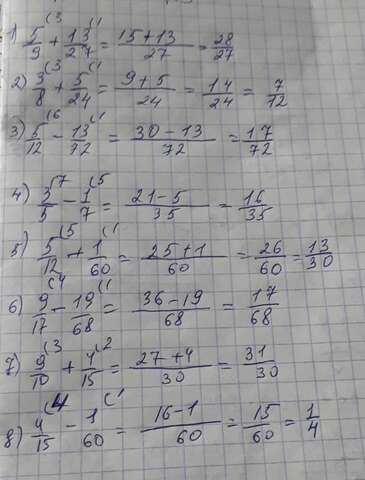 1) 5/9 (3 + 13/27 (1 = 15+13/27 = 28/27
2) 3/8 (3 + 5/24 (1 = 9+5/24 = 14/24 = 7/12
3) 5/12 (6 - 13/72 (1 = 30-13/72 = 17/72
4) 3/5 (7 - 1/7 (5 = 21-5/35 = 16/35
5) 5/12 (5 + 1/60 (1 = 25+1/60 = 26/60 = 13/30
6) 9/17 (4 - 19/68 (1 = 36-19/68 = 17/68
7) 9/10 (3 + 4/15 (2 = 27+4/30 = 31/30
8) 4/15 (4 - 1/60 (1 = 16-1/60 = 15/60 = 1/4